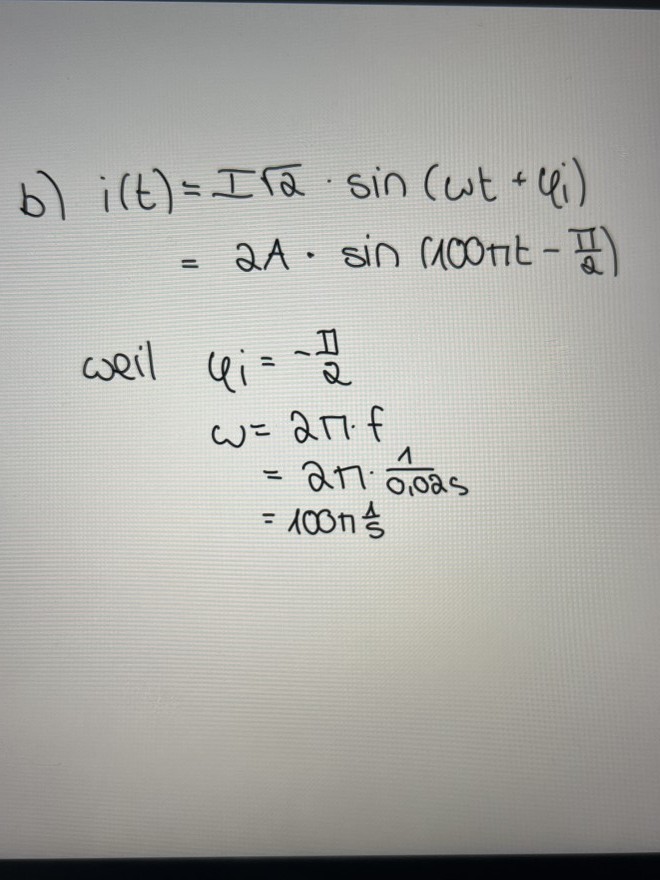 b) i(t) = I√2 · sin (ωt + φi)
= 2A · sin (100πt - π/2)
weil φi = -π/2
ω = 2π · f
= 2π · 1/0,02s
= 100π 1/s